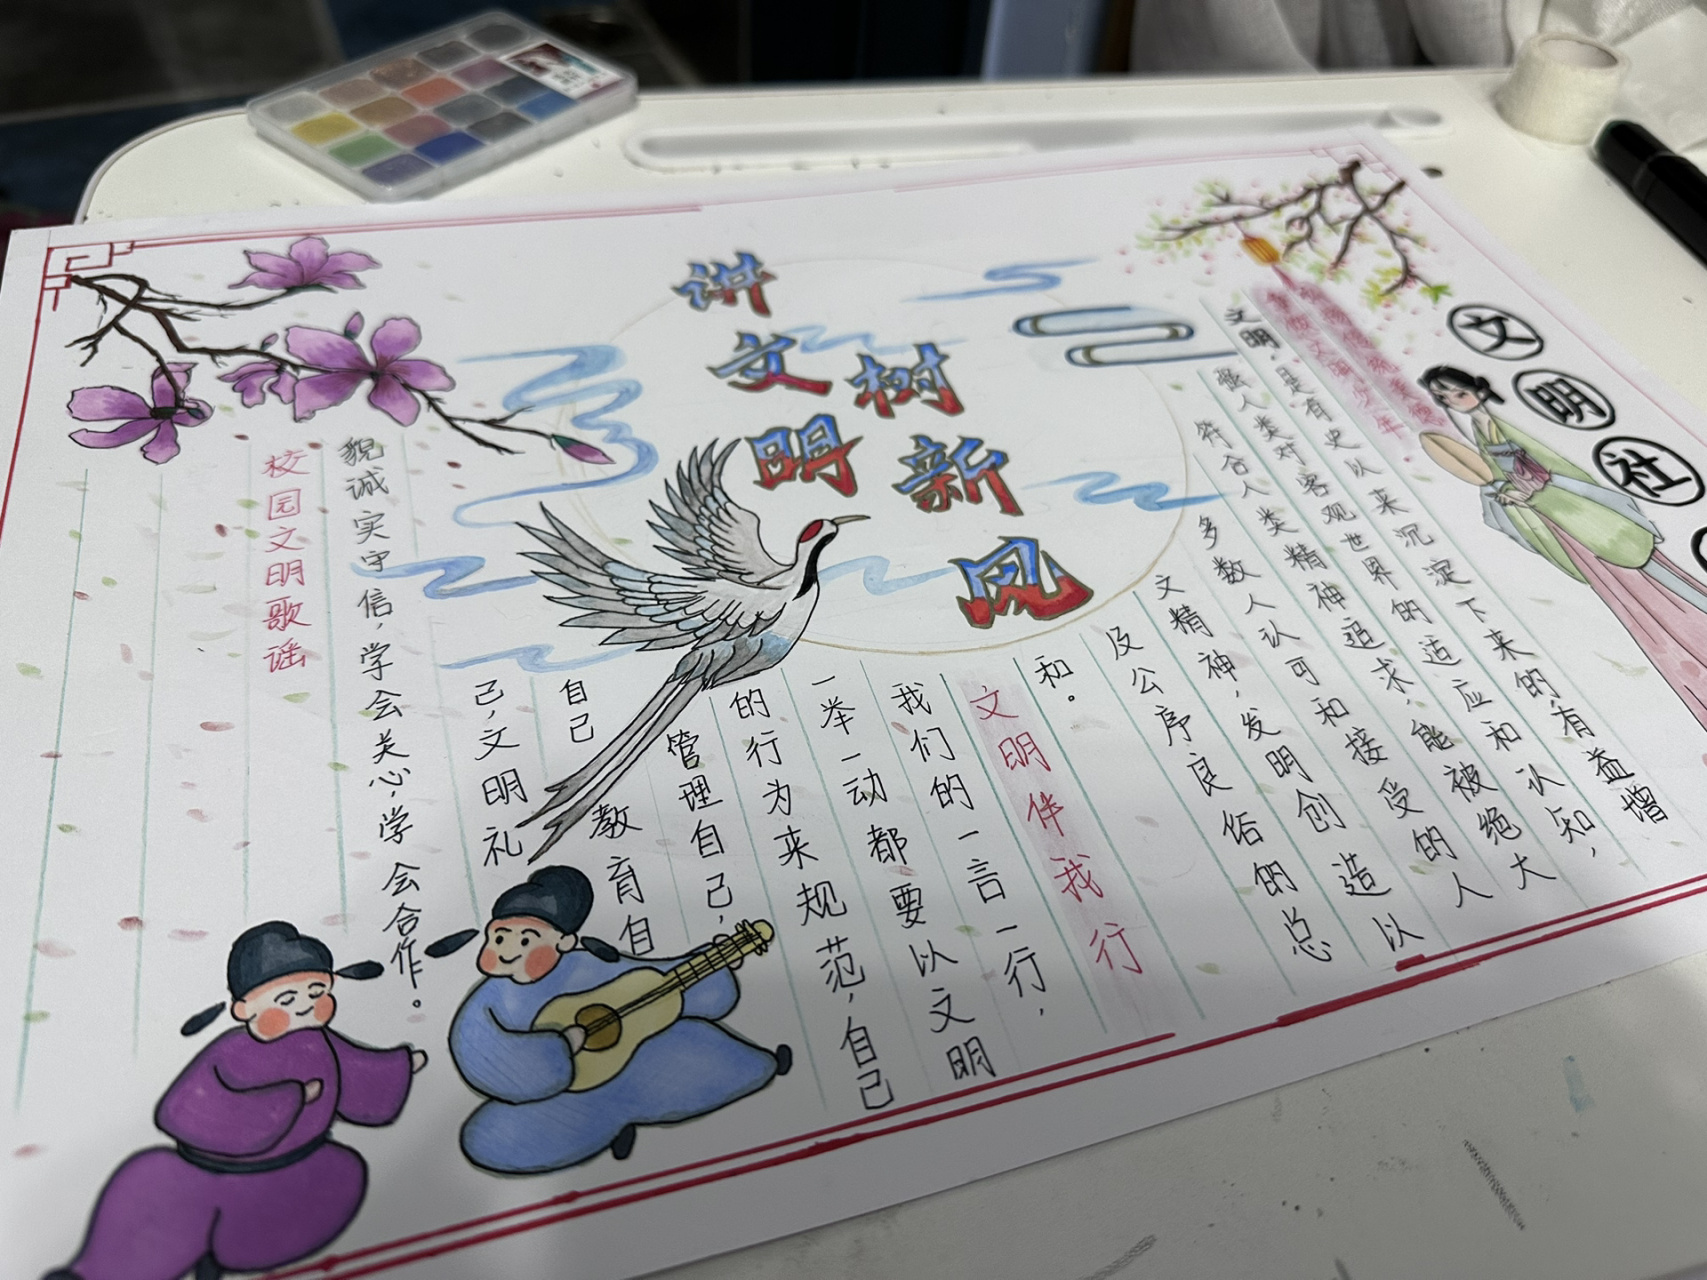 讲文明
树新风
文明社
争做文明少年
文明,是有史以来沉淀下来的,有益增
强人类对客观世界的适应和认知,
符合人类精神追求,能被绝大
多数人认可和接受的人
文精神,发明创造以
及公序良俗的总
和。
文明伴我行
我们的一言一行,
一举一动都要以文明
的行为来规范,自己
管理自己,
自己教育自
己,文明礼
貌诚实守信,学会关心,学会合作。
校园文明歌谣